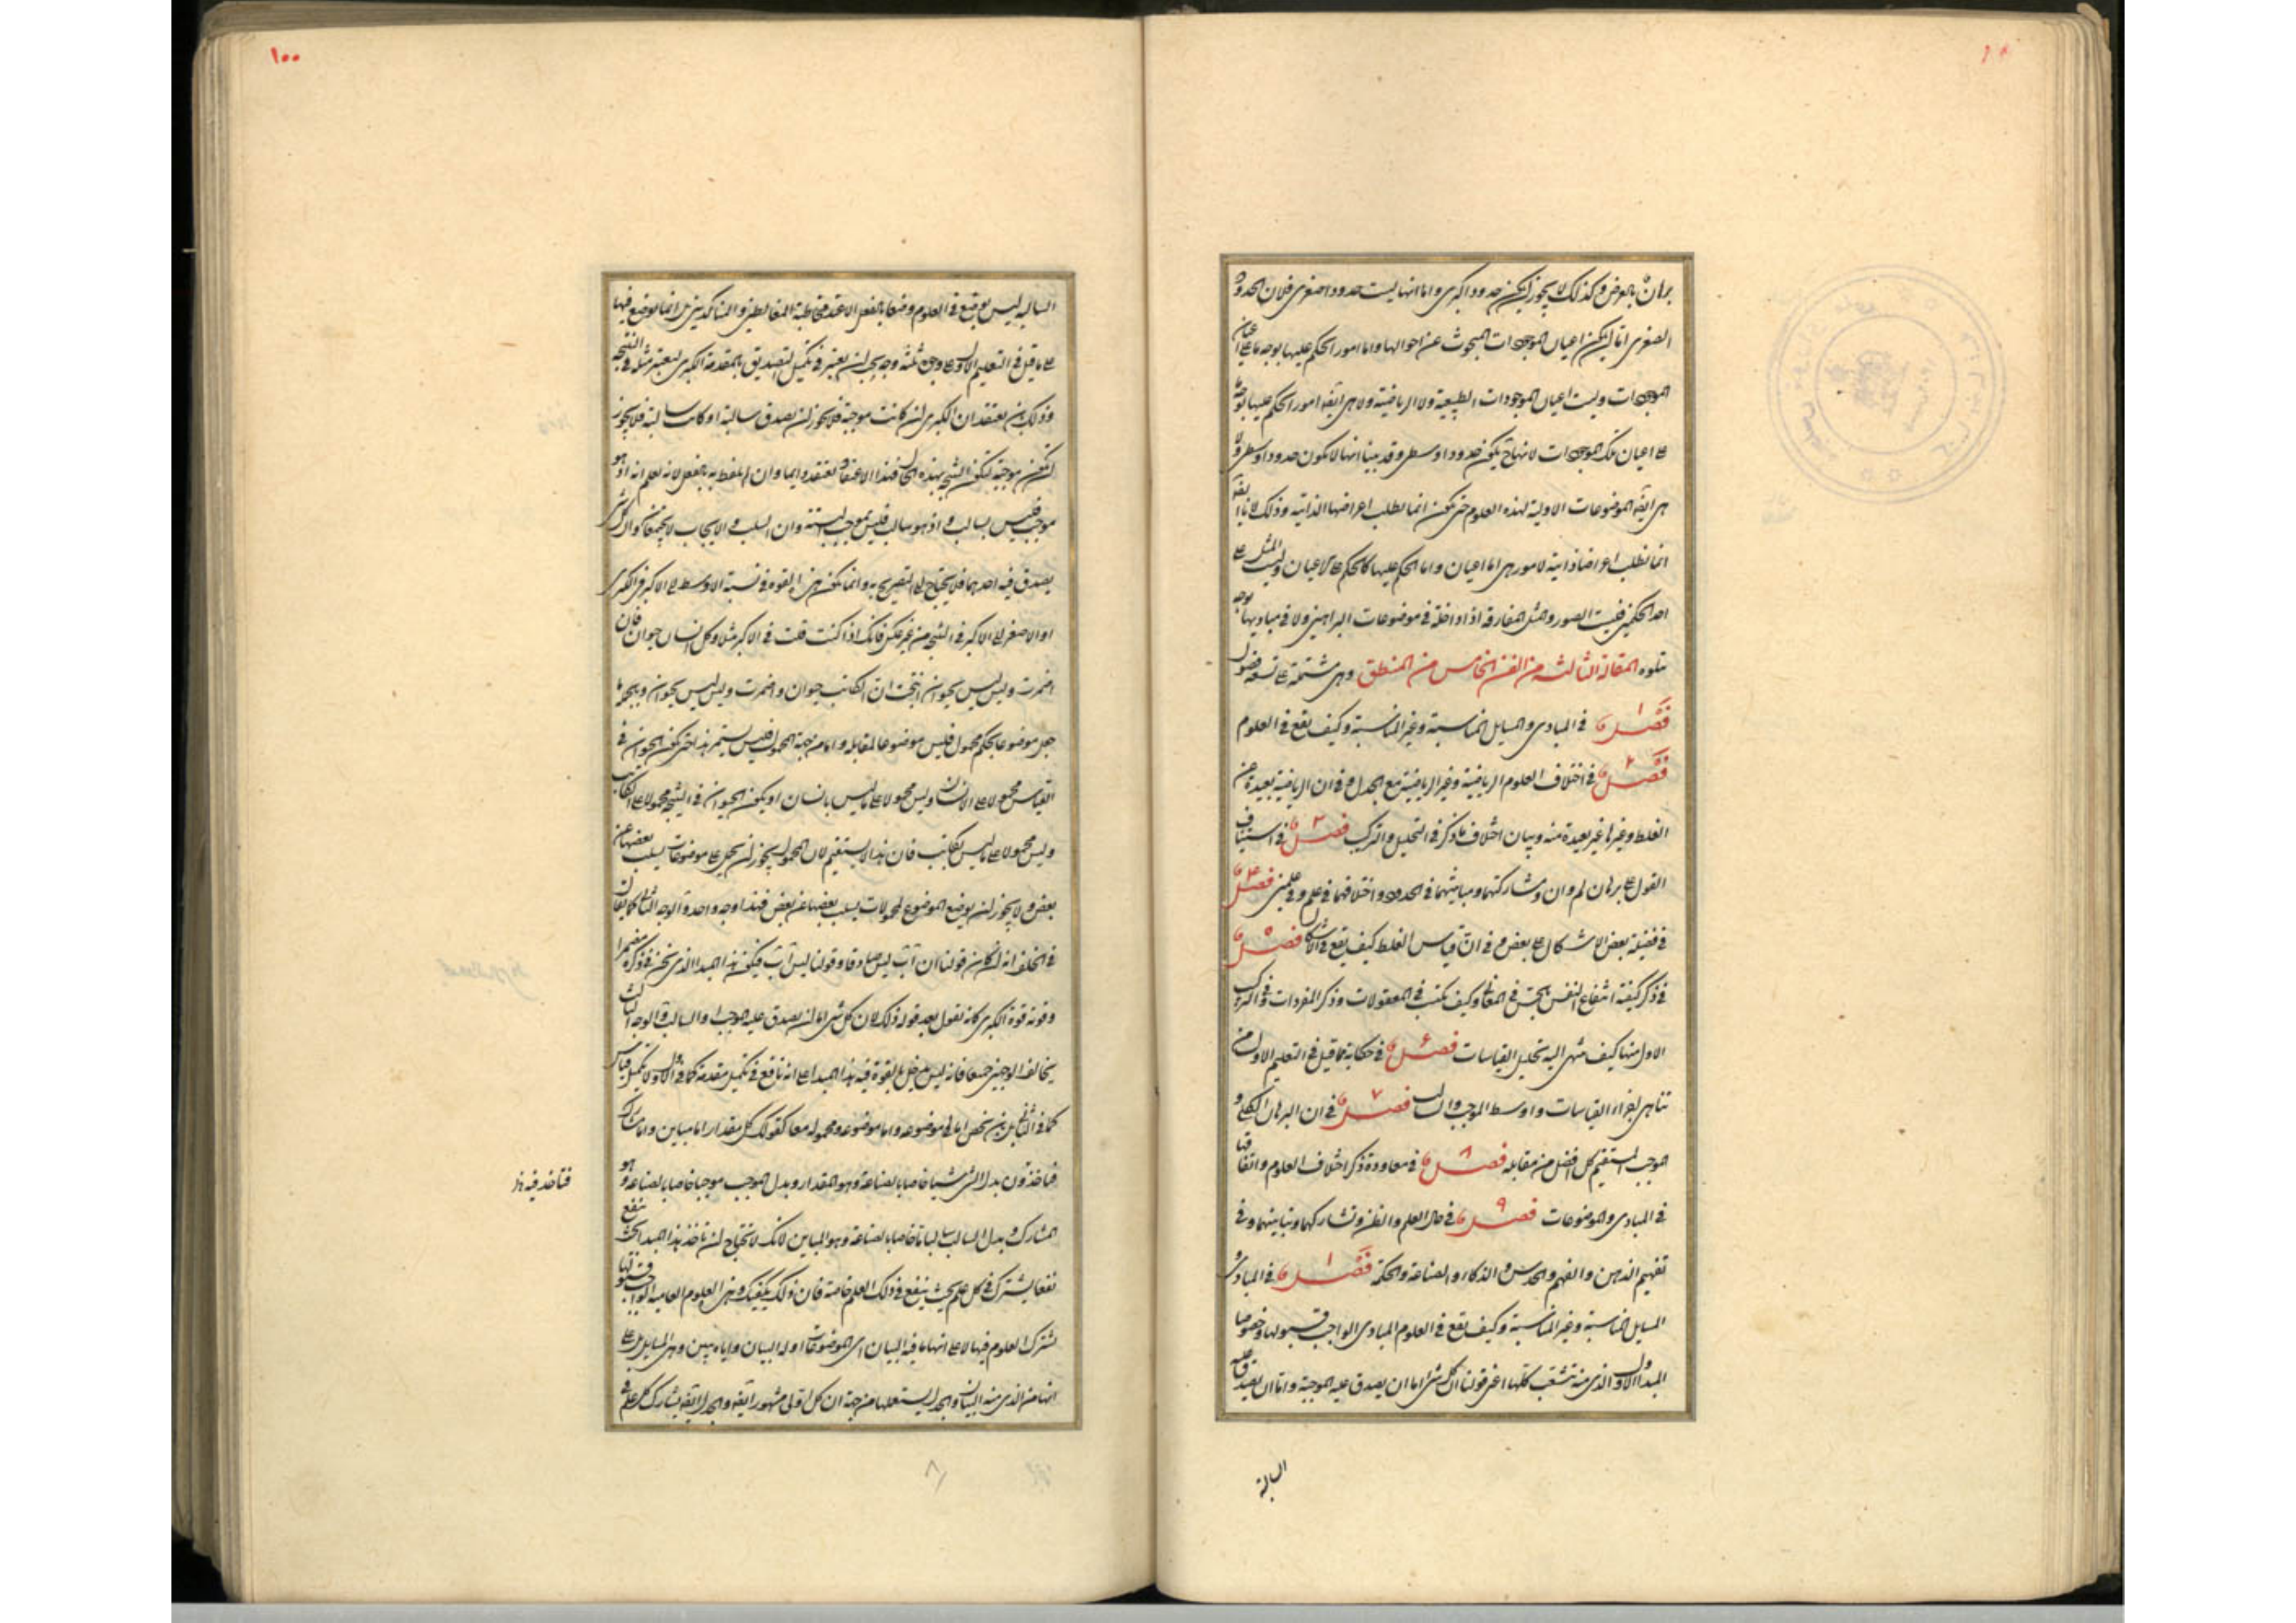 برهان بالعرض وكذلك لا يجوز ان يكون حدودا كبرى واما انها ليست حدودا صغرى فلان الحدود
الصغرى اما ان يكون اعيان الموجودات المبحوث عن احوالها واما امور الحكم عليها بوجه ما على اعيان
الموجودات وليست اعيان الموجودات الطبيعية ولا الرياضية ولا هى ايضا امور الحكم عليها بوجه
على اعيان تلك الموجودات لانها ح يكون حدودا وسطى وقد بينا انها لا تكون حدودا وسطى ولا
هى ايضا الموضوعات الاولية لهذه العلوم حتى تكون انما نطلب اعراضها الذاتية وذلك لانا ايضا
انما نطلب اعراضا ذاتية لامور هى اما اعيان واما الحكم عليها كالحكم على الاعيان وليست المثل على
احد الحكمين فليست الصور والمثل المفارقة اذا داخلة فى موضوعات البراهين ولا فى مباديها بوجه
تتلوه المقالة الثالثة من الفن الخامس من المنطق وهى مشتملة على تسعة فصول
فصل ١ فى المبادى والمسايل المناسبة وغير المناسبة وكيف يقع فى العلوم
فصل ٢ فى اختلاف العلوم الرياضية وغير الرياضية مع الجدل وفى ان الرياضية بعيدة عن
الغلط وغيرها غير بعيدة منه وبيان اختلاف ما ذكر فى التحليل والتركيب فصل ٣ فى استيناف
القول على برهان لم وان ومشاركتهما ومباينتهما فى الحدود واختلافهما فى علم وفى علمين فصل ٤
فى فضيلة بعض الاشكال على بعض وفى ان قياس الغلط كيف يقع فى الاشكال فصل ٥
فى ذكر كيفية انتفاع النفس بالحس فى المعقولات وذكر المفردات وفى التركيب
الاول منها كيف ينتهى اليه تحليل القياسات فصل ٦ فى حكاية ما قيل فى التعليم الاول من
تناهى اجزاء القياسات واوسط الموجب والسالب فصل ٧ فى ان البرهان الكلى و
الموجب المستقيم كل افضل من مقابله فصل ٨ فى معاودة ذكر اختلاف العلوم واتفاقها
فى المبادى والموضوعات فصل ٩ فى حال العلم والظن وتشاركهما وتباينهما وفى
تفهيم الذهن والفهم والحدس والذكاء والصناعة والحكمة فصل ١ فى المبادى و
المسايل المناسبة وغير المناسبة وكيف تقع فى العلوم المبادى الواجب قبولها وخصوصا
المبدا الاول الذى منه تتشعب كلها اعنى قولنا ان كل شى اما ان يصدق عليه الموجبة واما ان يصدق عليه
السالبة
١٠٠
السالبة ليس يوضع فى العلوم وضعا بالفعل الا عند مخاطبة المغالطين والمناكدين بل انما يوضع فيها
على ما قيل فى التعليم الاول على وجوه ثلثة وجه يجب ان يعتبر فى تكميل التصديق بالمقدمة الكبرى ليعتبر مثله فى النتيجة
وذلك بان يعتقد ان الكبرى ان كانت موجبة فلا يجوز ان يصدق سالبة او كانت سالبة فلا يجوز
ان تكون موجبة لتكون النتيجة بهذه الحال فهذا الاعتقاد نعتقده دايما وان لم نلفظ به بالفعل لانه نعلم انه اذ هو
موجب فليس بسالب واذ هو سالب فليس بموجب البتة وان السلب والايجاب لا يجتمعان وان كل شى
يصدق فيه احدهما فلا يحتاج الى التصريح به وانما تكون هذه القوة فى نسبة الاوسط الى الاكبر فى الكبرى
او الاصغر الى الاكبر فى النتيجة من غير عكس فانك اذا كنت قلت فى الاكبر مثلا وكل انسان حيوان فان
اضمرت وليس ليس بحيوان انتجت ان الكاتب حيوان واضمرت وليس ليس بحيوان وبجملة ما
جعل موضوعا بحكم محمول فليس موضوعا لمقابله واما من جهة المحمول فليس يستمر هذا حتى تكون الحيوان فى
القياس محمولا على الانسان وليس محمولا على ما ليس بانسان او يكون الحيوان فى النتيجة محمولا على الكاتب
وليس محمولا على ما ليس بكاتب فان هذا لا يستقيم لان المحمول يجوز ان يحمل على موضوعات يسلب بعضها عن
بعض ولا يجوز ان يوضع الموضوع لمحمولات يسلب بعضها عن بعض فهذا وجه واحد والوجه الثانى كما يقال
فى الخلف انه ان كان قولنا ان آب ليس صادقا وقولنا ليس آب فيكون هذا المبدا الذى نحن فى ذكره مضمرا
وقوته قوة الكبرى كانه نقول بعد قوله ذلك لان كل شى اما ان يصدق عليه الموجب او السالب والوجه الثالث
يخالف الوجهين جميعا فانه ليس يدخل بالقوة فيه هذا المبدا على انه نافع فى تكميل مقدمة كما فى الاول ولا تكميل قياس
كما فى الثانى بل بان يخص اما فى موضوعه واما موضوعه ومحموله معا كقولك كل مقدار اما مباين واما مشارك
فتاخذون بدل الشى شيئا خاصا بالصناعة وهو المقدار وبدل الموجب موجبا خاصا بالصناعة وهو
فتاخذ فيه
المشارك وبدل السالب سالبا خاصا بالصناعة وهو المباين لانك لا تحتاج ان تاخذ هذا المبدا بحيث ينفع
نفعا يشترك فى كل علم بحيث ينفع فى ذلك العلم خاصة فان ذلك يكفيك وهذه العلوم العامية الواجب قبولها
تشترك العلوم فيها لا على انها ما فيه البيان اى الموضوعات او له البيان واياه يبين وهى المسايل بل على
انها من الذى منه البيان والجدل يستعملها من جهة ان كل اولى مشهور ايضا والجدل ايضا يشارك كل علم فى